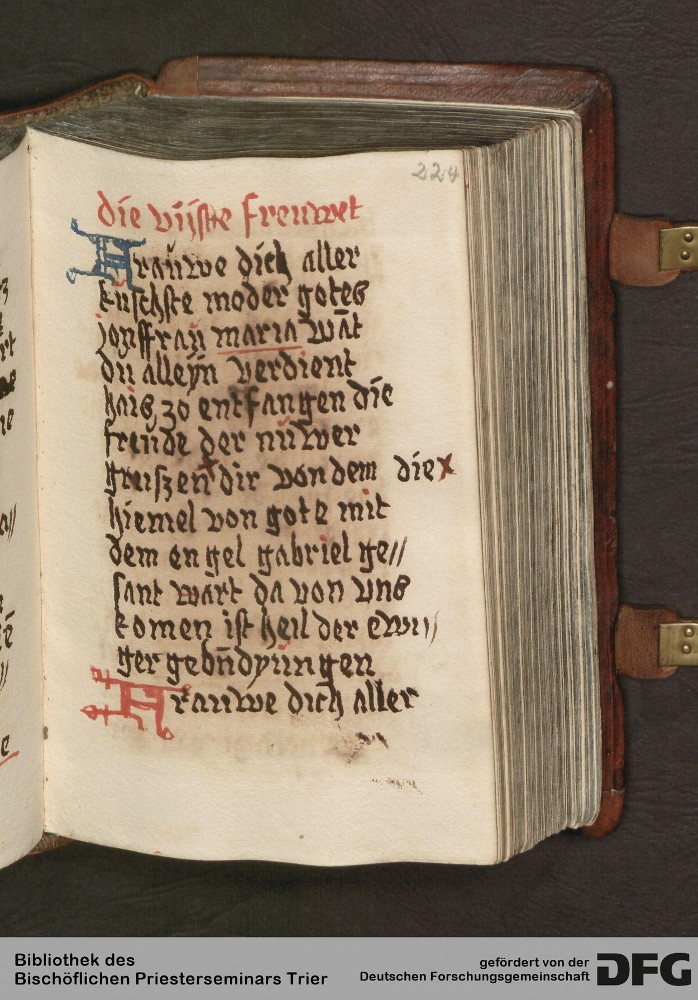 224
die vijste freuwet
Frauwe dich aller
kuschste moder gotes
jonffrau maria wāt
du alleyn verdient
hais zo entfangen die
freude der nuwer
gruiszen dir von dem die x
hiemel von gote mit
dem engel gabriel ge//
sant wart da von uns
komen ist heil der ewi//
ger gebn̄dyungen
Frauwe dich aller
Bibliothek des
Bischöflichen Priesterseminars Trier
gefördert von der
Deutschen Forschungsgemeinschaft
DFG